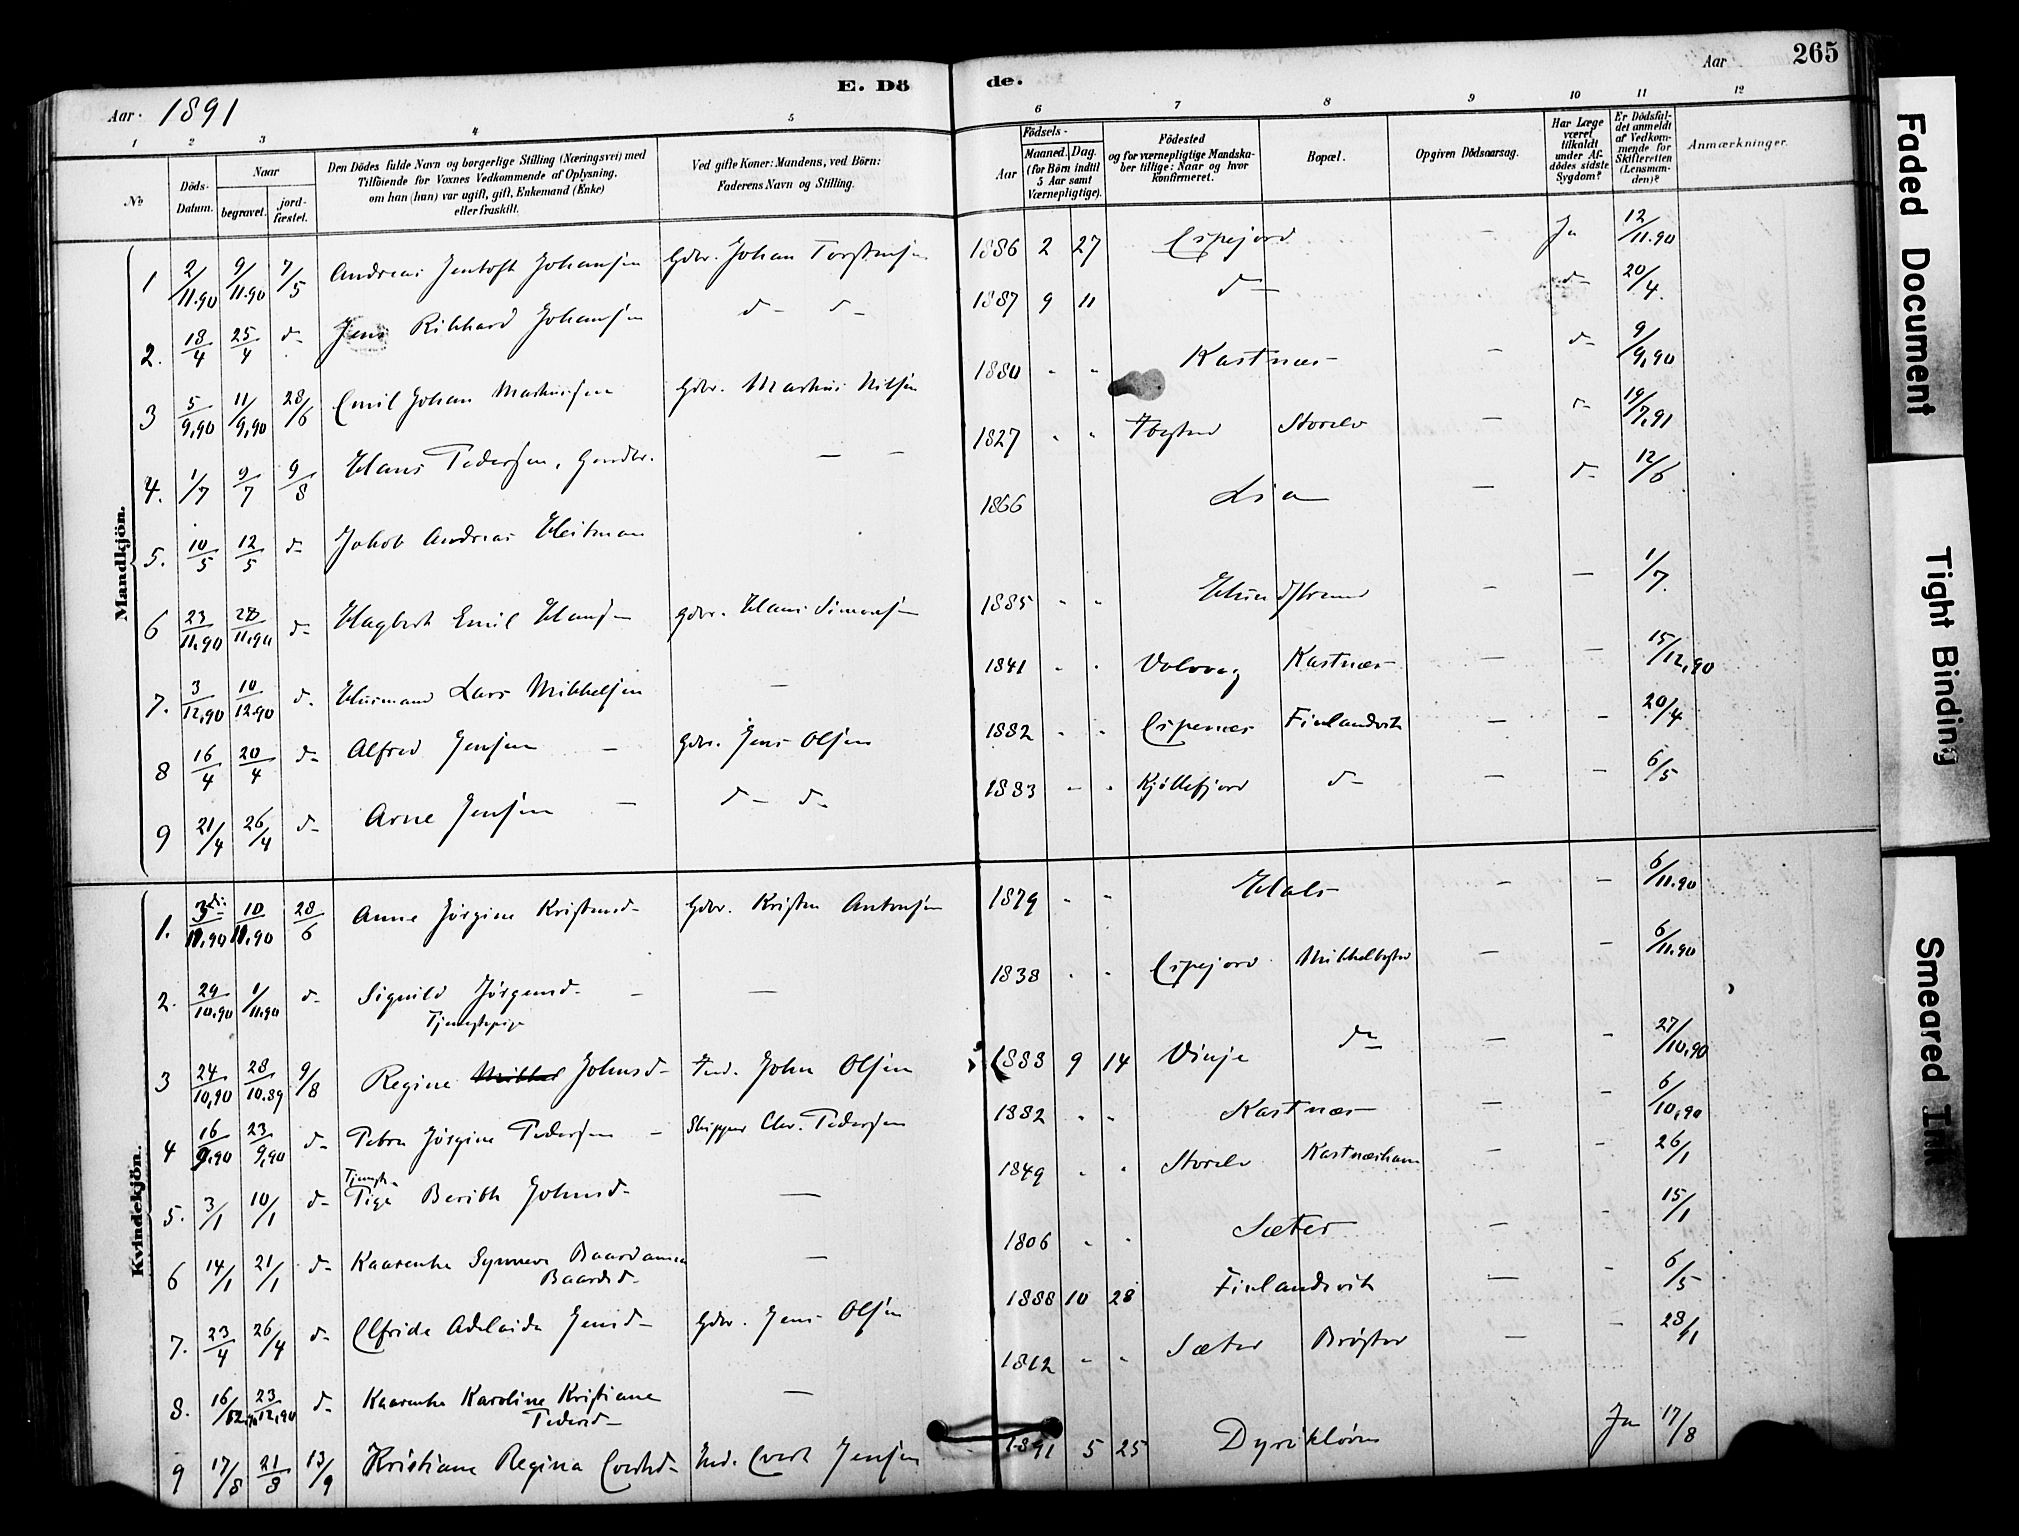 265
E. Dö de.
Aar 1891
Aar
1 2 3 4 5 6 7 8 9 10 11 12
No
Döds-Datum.
Naar
begravet.
jord-fæstet.
Den Dödes fulde Navn og borgerlige Stilling (Næringsvei) med
Tilföiende for Voxnes Vedkommende af Oplysning,
om han (hun) var ugift, gift, Enkemand (Enke)
eller fraskilt.
Ved gifte Koner: Mandens, ved Börn:
Faderens Navn og Stilling.
Födsels-
Aar
Maaned. Dag.
(for Börn indtil
5 Aar samt
Værnepligtige).
Födested
og for værnepligtige Mandska-
ber tillige: Naar og hvor
konfirmeret.
Bopæl.
Opgiven Dödsaarsag.
Har Læge
været
tilkaldt
under Af-
dödes sidste
Sygdom?
Er Dödsfal-
det anmeldt
af Vedkom-
mende for
Skifteretten
(Lensman-
den)?
Anmærkninger.
Mandkjön.
1 2/11.90 9/11.90 7/5 Andreas Jentoft Johansen Gdbr. Johan Torstensen 1886 2 27 Espejord — Ja 12/11.90
2. 18/4 25/4 d- Jens Rikhard Johansen d- d- 1887 9 11 d- d- 20/4.
3 5/9,90 11/9,90 28/6 Emil Johan Markussen Gdbr. Markus Nilsen 1880 - - Kastnæs — d- 9/9,90
4. 1/7 9/7 9/8 Hans Pedersen, Gaardbr. — — 1827 - - Ibestad Storelv — d- 19/7,91
5. 10/5 12/5 d- Jakob Andreas Heitman 1866 Lia — d- 12/6
6 23/11,90 28/11,90 d- Hagbart Emil Hansen Gdbr. Hans Simonsen 1885 - - Hundstrand — — 1/7.
7. 3/12,90 10/12.90 d- Husmand Lars Mikkelsen — 1841 - - Kastnæs — — 15/12,90
8 16/4 20/4 d- Alfred Jensen — Gdbr. Jens Olsen 1882 - - Espenæs Finlandsvik — — 20/4
9 21/4 26/4 d- Arne Jensen — d- d- 1883 - - Kjöllefjord d- — — 6/5
Kvindekjön.
1. 10/11,90 28/6 Anne Jørgine Kristensd- Gdbr. Kristen Antonsen 1879 - - Hals — — 6/11.90
2. 29/10.90 1/11.90 d- Signild Jørgensd. — — 1838 - - Espejord Mikkelbostad — — 6/11.90
Tjenestepige
3 24/10,90 28/10.89 9/8 Regine Johnsd- Ind. John Olsen 1883 9 14 Vinje do — — 27/10,90
4 16/9,90 23/9,90 d- Petra Jørgine Pedersen — Skipper Chr. Pedersen 1882 - - Kastnæs — — 6/10,90
Tjenest-
5. 3/1 10/1 d- Pige Berith Johnsd- — 1849 - - Storelv Kastnæshavn — — 26/1
6 14/1 21/1 d- Kaarenka Synnøve Baardamina — 1806 - - Sæter — — 15/1
Baardsd-
7. 23/4 26/4 d- Elfrida Adelaida Jensd- Gdbr. Jens Olsen 1888 10 28 Finlandsvik — — 6/5
8. 16/12,90 23/12,90 d- Kaarenka Karoline Kristiane — 1812 - - Sæter — — 28/1
Pedersd-
9 17/8 21/8 13/9 Kristiane Regina Evertsd- Ind. Evert Jensen 1891 5 25 Ja 17/8
Faded Document
Tight Binding
Smeared Ink